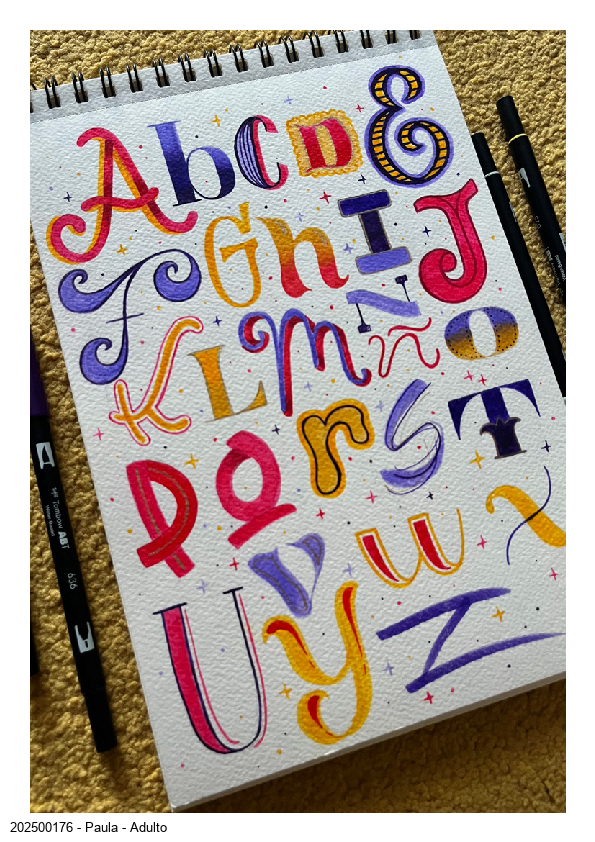 A b C D E
F G h I J
K L M N ñ O
P Q r S T
U V W X
Y Z
Tombow ABT
636
202500176 - Paula - Adulto